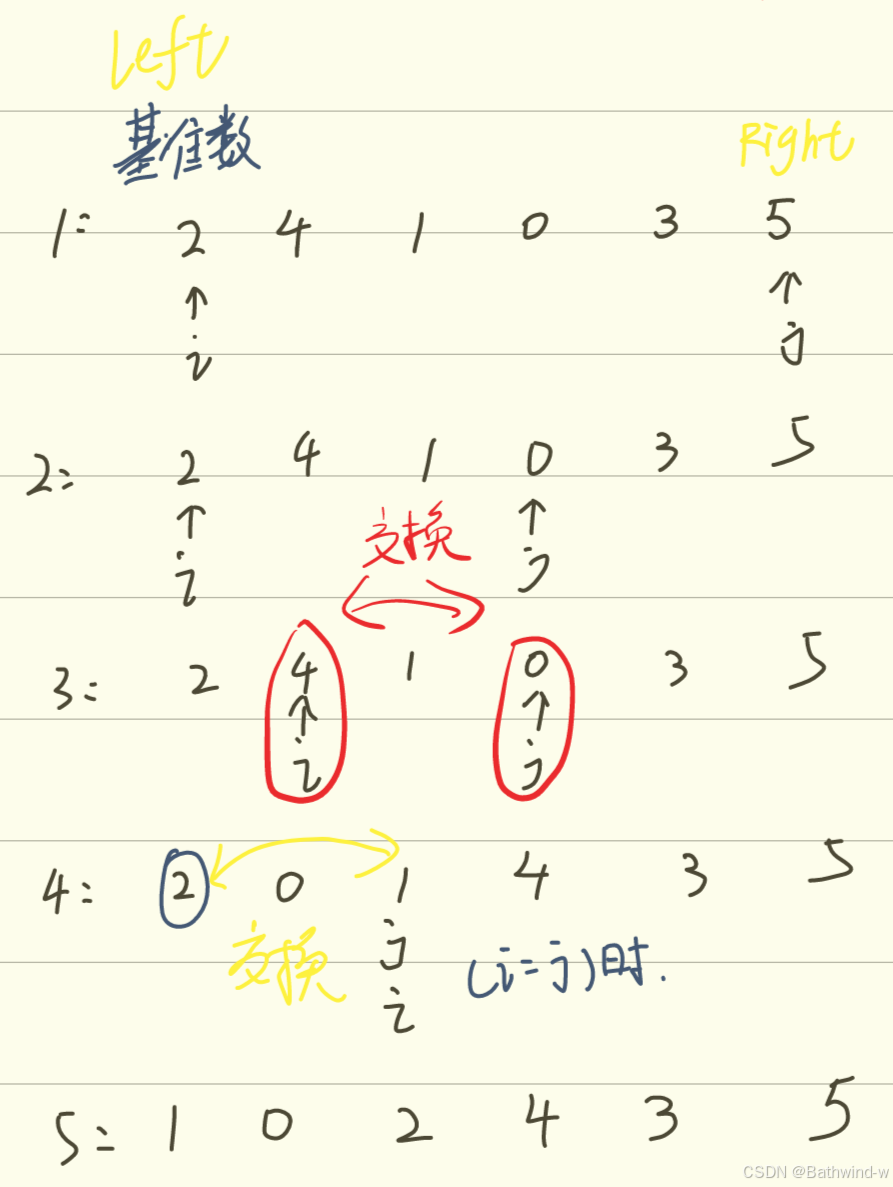 Left
基准数
Right
1: 2 4 1 0 3 5
↑ ↑
i j
2: 2 4 1 0 3 5
↑ ↑
i j
交换
3: 2 4 1 0 3 5
↑ ↑
i j
4: 2 0 1 4 3 5
j
i
交换
(i=j)时.
5: 1 0 2 4 3 5
CSDN @Bathwind-w